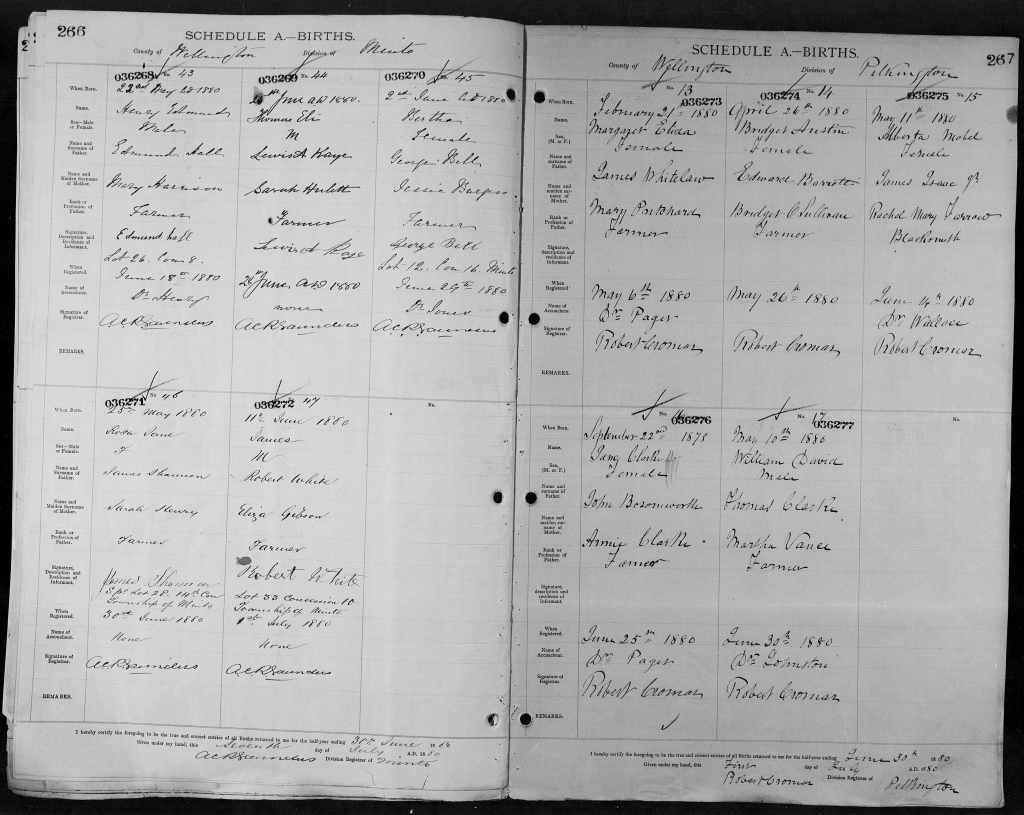 266
SCHEDULE A.—BIRTHS.
County of Wellington Division of Minto
036268 No. 43
036269 No. 44
036270 No. 45
When Born. 22nd May 1880 1880. 2nd June A.D 1880
Name. Henry Edmund Thomas Eli Bertha
Sex—Male or Female. Male M Female
Name and Surname of Father. Edmund Hall Lewis A Kaye George Bell
Name and Maiden Surname of Mother. Mary Harrison Sarah Hulett Jessie
Rank or Profession of Father. Farmer Farmer Farmer
Signature, Description and Residence of Informant. Edmund Hall Lewis A Kaye George Bell
Lot 26. Con 8. Lot 12. Con 16. Minto
When Registered. June 18th 1880 June. A.D 1880 June 29th 1880
Name of Accoucheur. Dr Henry none Dr Jones
Signature of Registrar. A C R Saunders A C R Saunders A C R Saunders
REMARKS.
036271 No. 46
036272 No. 47
No.
When Born. 25th May 1880 11th June 1880
Name. Rosa Jane James
Sex—Male or Female. F M
Name and Surname of Father. James Shannon Robert White
Name and Maiden Surname of Mother. Sarah Henry Eliza Gibson
Rank or Profession of Father. Farmer Farmer
Signature, Description and Residence of Informant. James Shannon Robert White
Lot 28. 14th Con Lot 33 Concession 10
Township of Minto Township of Minto
When Registered. 30th June 1880 1st July 1880
Name of Accoucheur. None None
Signature of Registrar. A C R Saunders A C R Saunders
REMARKS.
I hereby certify the foregoing to be the true and correct entries of all Births returned to me for the half-year ending 30th June 1880
Given under my hand, this Seventh day of July A.D. 1880
A C R Saunders Division Registrar of Minto
267
SCHEDULE A.—BIRTHS.
County of Wellington Division of Pilkington
No. 13 036273
036274 No. 14
036275 No. 15
When Born. February 21st 1880 April 26th 1880 May 11th 1880
Name. Margaret Eliza Bridget Austin Alberta Mabel
Sex, (M. or F.) Female Female Female
Name and surname of Father. James Whitelaw Edward Barrett James Isaac
Name and maiden surname of Mother. Mary Pritchard Bridget O'Sullivan Rachel Mary Farrow
Rank or Profession of Father. Farmer Farmer Blacksmith
Signature, description and residence of Informant.
When Registered May 6th 1880 May 26th 1880 June 4th 1880
Name of Accoucheur. Dr Paget Dr Wallace
Signature of Registrar. Robert Cromar Robert Cromar Robert Cromar
REMARKS.
036276
No. 17 036277
No.
When Born. September 22nd 1878 May 10th 1880
Name. Clarke William David
Sex, (M. or F.) Female Male
Name and surname of Father. John Bosomworth Thomas Clarke
Name and maiden surname of Mother. Annie Clarke Martha Vance
Rank or Profession of Father. Farmer Farmer
Signature, description and residence of Informant.
When Registered. June 25th 1880 June 30th 1880
Name of Accoucheur. Dr Paget Dr Johnston
Signature of Registrar Robert Cromar Robert Cromar
REMARKS.
I hereby certify the foregoing to be the true and correct entries of all Births returned to me for the half-year ending June 30th 1880
Given under my hand, this First day of July A.D. 1880
Robert Cromar Division Registrar of Pilkington